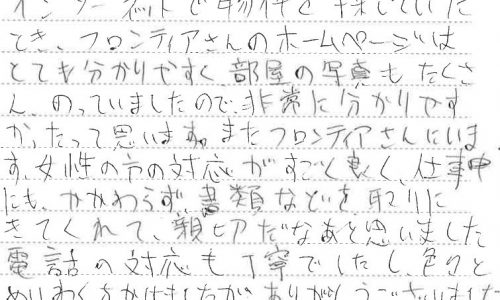 インターネットで物件を探していた
とき、フロンティアさんのホームページは
とても分かりやすく部屋の写真もたくさ
ん、のっていましたので、非常に分かりやす
かったって思います。またフロンティアさんにいま
す、女性の方の対応がすごく良く、仕事中
にも、かかわらず、書類などを取りに
きてくれて、親切だなあと思いました
電話の対応も丁寧でしたし、色々と
めいわくをかけましたがありがとうございました